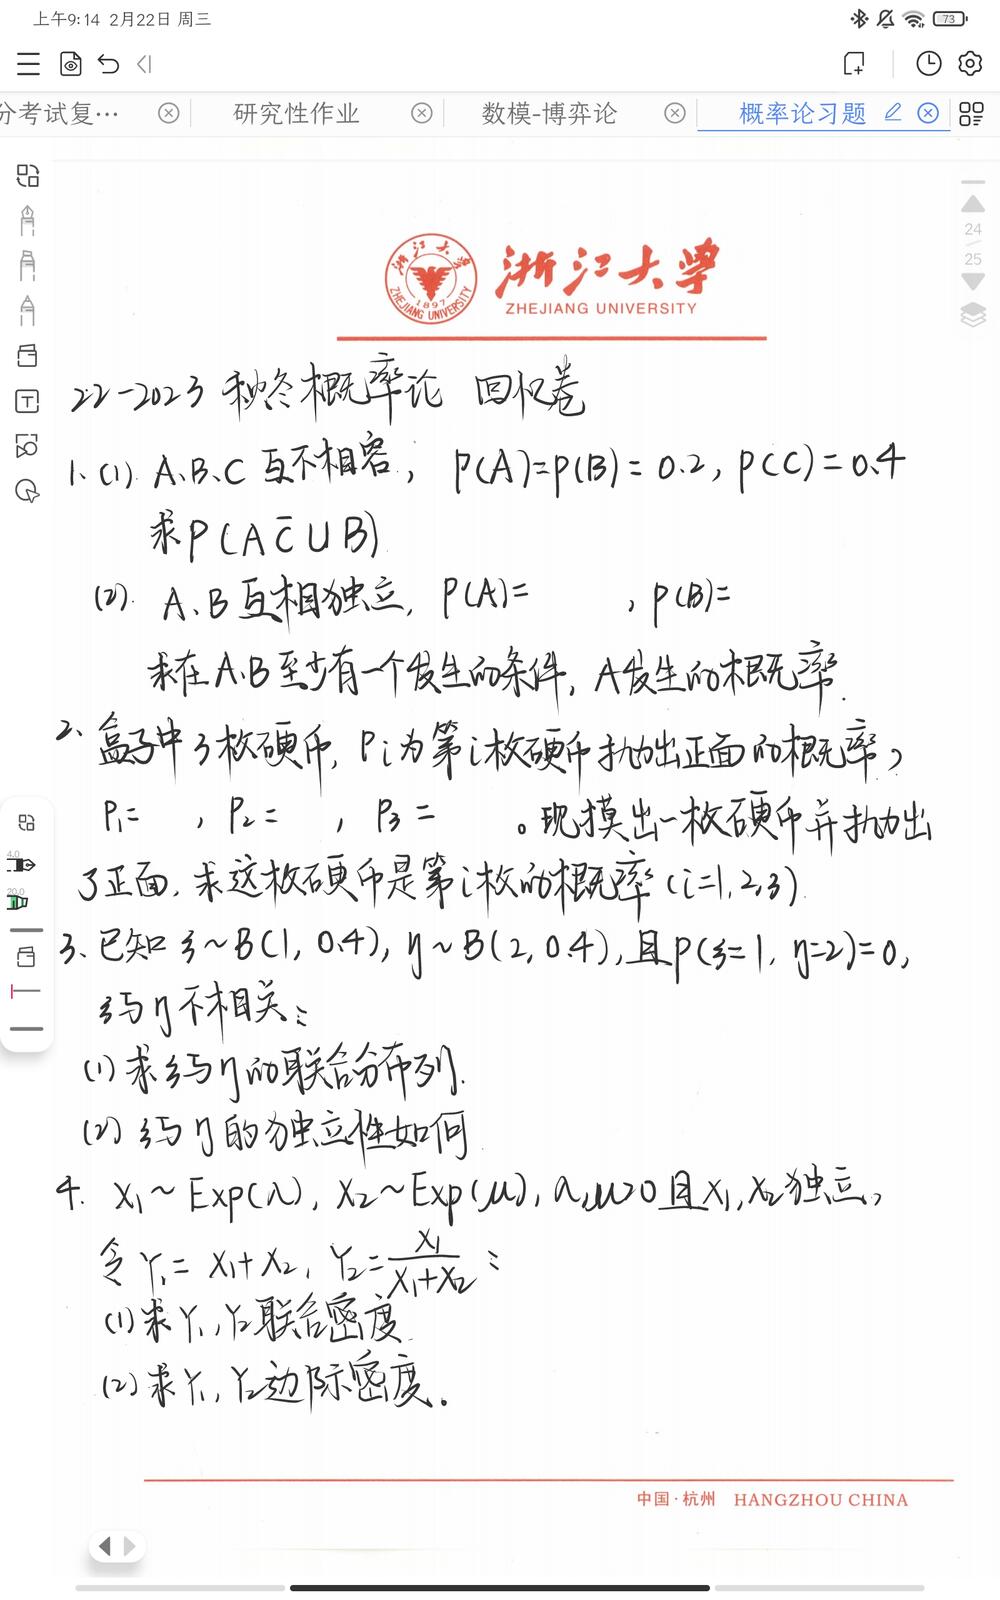 上午9:14 2月22日 周三
73
分考试复…
研究性作业
数模-博弈论
概率论习题
24
25
浙江大学
ZHEJIANG UNIVERSITY
浙江大学
ZHEJIANG UNIVERSITY
1897
22-2023 秋冬概率论 回忆卷
1. (1). A、B、C 互不相容, P(A)=P(B)=0.2, P(C)=0.4
求P(AC̄∪B)
(2). A、B互相独立, P(A)=      , P(B)=
求在A、B至少有一个发生的条件, A发生的概率.
2、盒子中3枚硬币, Pi为第i枚硬币抛出正面的概率,
P₁=    , P₂=    , P₃=    。现摸出一枚硬币并抛出
了正面, 求这枚硬币是第i枚的概率 (i=1,2,3)
3、已知 ξ~B(1, 0.4), η~B(2, 0.4), 且P(ξ=1, η=2)=0,
ξ与η不相关:
(1) 求ξ与η的联合分布列.
(2) ξ与η的独立性如何
4. X₁~Exp(λ), X₂~Exp(μ), λ,μ>0且X₁,X₂独立,
令Y₁=X₁+X₂, Y₂=X₁/(X₁+X₂):
(1) 求Y₁,Y₂联合密度
(2) 求Y₁,Y₂边际密度.
4.0
20.0
中国·杭州 HANGZHOU CHINA